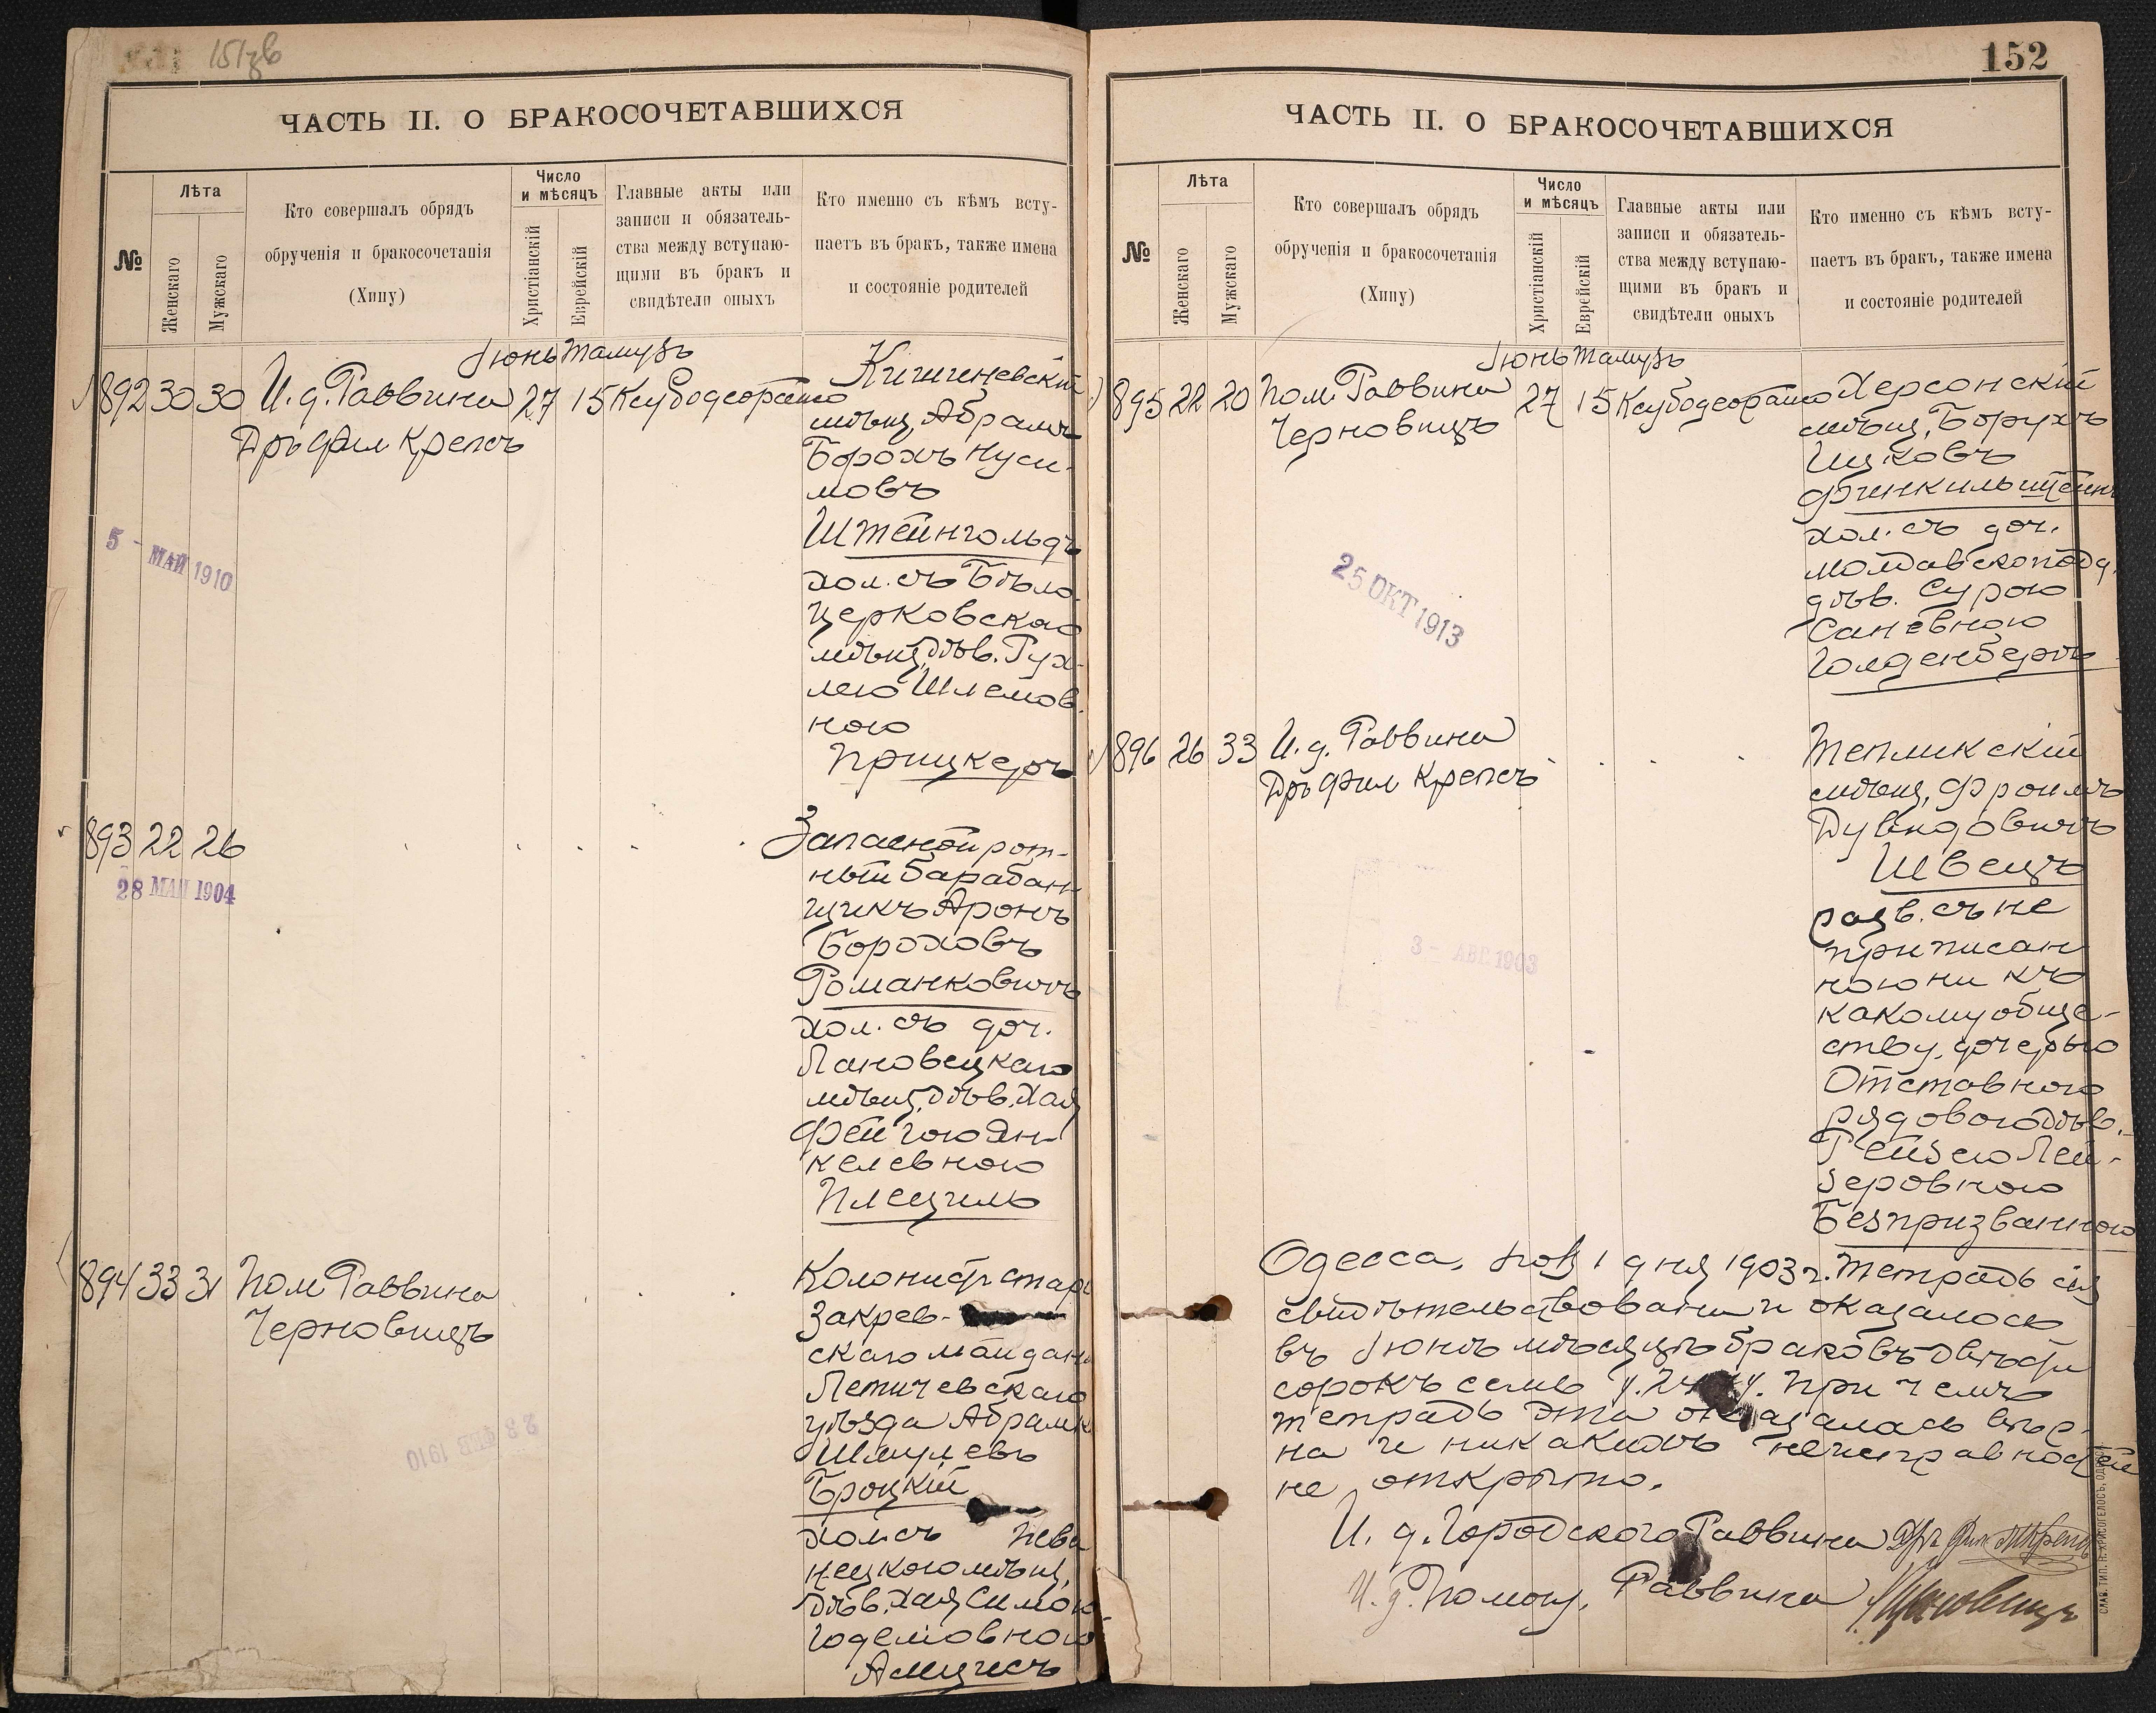 151 зв
ЧАСТЬ II. О БРАКОСОЧЕТАВШИХСЯ
№
Лѣта
Женскаго
Мужскаго
Кто совершалъ обрядъ
обрученія и бракосочетанія
(Хипу)
Число
и мѣсяцъ
Христіанскій
Еврейскій
Главные акты или
записи и обязатель-
ства между вступаю-
щими въ бракъ и
свидѣтели оныхъ
Кто именно съ кѣмъ всту-
паетъ въ бракъ, также имена
и состояніе родителей
Іюнь Тамузъ
892 30 30 И. д. Раввина 27 15
Дръ Фил Крепсъ
Кишиневскій
мѣщ. Абрамъ
Борохъ Нуси-
мовъ
Штейнгольдъ
хол. съ Бѣло-
церковскою
мѣщ. дѣв. Рух-
лею Шлемов-
ною
Прицкеръ
5 - МАЙ 1910
893 22 26
28 МАЙ 1904
Запасной рот-
ный барабан-
щикъ Аронъ
Бороховъ
Романковичъ
хол. съ доч.
Лановецкаго
мѣщ. дѣв. Хая
Фейгою Ян-
келевною
Плецель
894 33 31 Пом Раввина
Черновицъ
Колонистъ стар
Закрев-
скаго майдана
Летичевскаго
уѣзда Абрамъ
Шмулевъ
Броцкій
хол съ
мѣщ.
дѣв. Хая Симою
Годемовною
28 ФЕВ 1910
152
ЧАСТЬ II. О БРАКОСОЧЕТАВШИХСЯ
№
Лѣта
Женскаго
Мужскаго
Кто совершалъ обрядъ
обрученія и бракосочетанія
(Хипу)
Число
и мѣсяцъ
Христіанскій
Еврейскій
Главные акты или
записи и обязатель-
ства между вступаю-
щими въ бракъ и
свидѣтели оныхъ
Кто именно съ кѣмъ всту-
паетъ въ бракъ, также имена
и состояніе родителей
Іюнь Тамузъ
895 22 20 Пом. Раввина 27 15
Черновицъ
Херсонскій
мѣщ. Борухъ
Ицковъ
Финкильштейнъ
хол. съ доч.
молдавскоподд.
дѣв. Сурою
Саневною
Голденбергъ
25 ОКТ 1913
896 26 33 И. д. Раввина
Дръ Фил Крепсъ
Тепликскій
мѣщ. Фроимъ
Дувидовичъ
Швецъ
разв. съ не
приписан
ною ни къ
какому обще-
ству, дочерью
Отставного
рядового дѣв.
Рейзею Лей-
зеровною
Безпризванною
3 - АВГ. 1903
Одесса, 1 дня 1903 г. Тетрадь сія
свидѣтельствована и оказалось
въ Іюнь мѣсяцѣ браковъ двѣсти
сорокъ семь При чемъ
тетрадь эта оказалась вѣр-
на и никакихъ неисправностей
не открыто.
И. д. Городского Раввина Дръ Фил Крепсъ
И. д. Помощ. Раввина Черновицъ
СЛАВ. ТИП. Н. ХРИСОГЕЛОСЪ, ОДЕССА